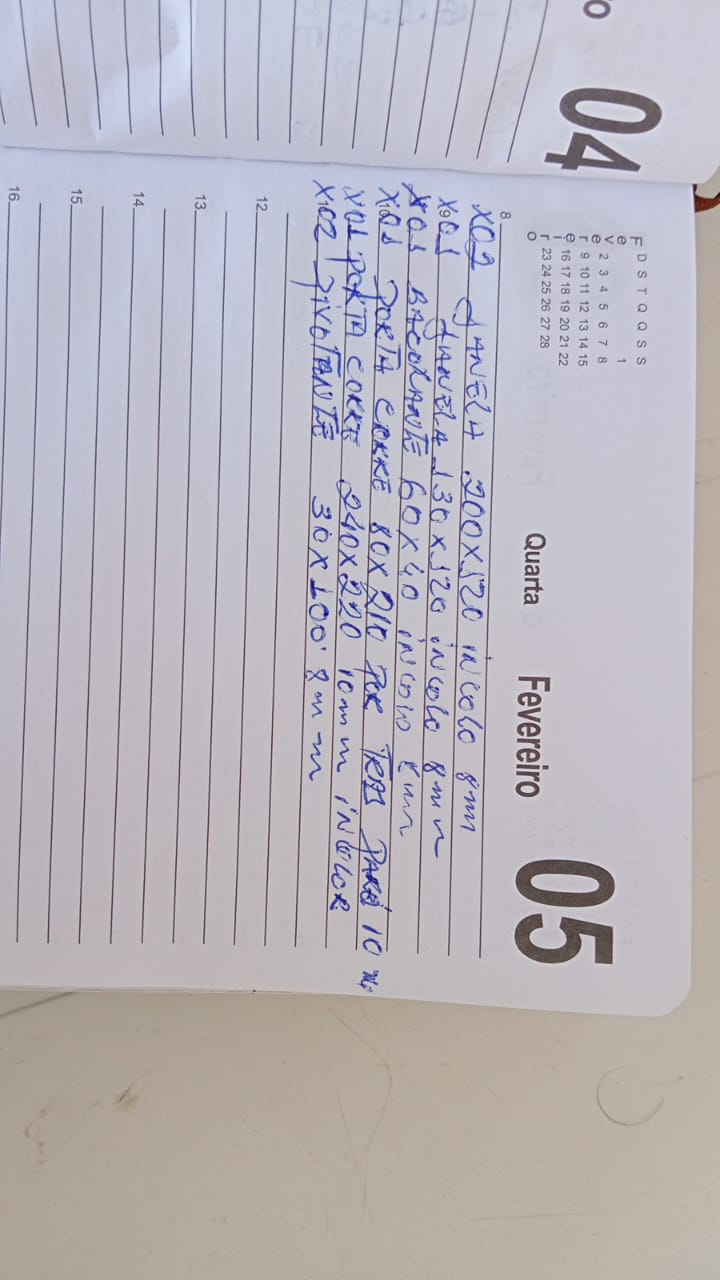 04
F D S T Q Q S S
e 1
v 2 3 4 5 6 7 8
e
r 9 10 11 12 13 14 15
e 16 17 18 19 20 21 22
i
r 23 24 25 26 27 28
o
Quarta Fevereiro 05
8 X02 JANELA 200X120 incolo 8mm
9 X01 JANELA 130X120 incolo 8mm
X01 BACULANTE 60X40 incolo 8mm
10 X01 PORTA CORRE 80X210 POR TRAS PARE 10 m
X01 PORTA CORRE 240X220 10mm iNCOLOR
X02 PIVOTANTE 30X100 8mm
12
13
14
15
16